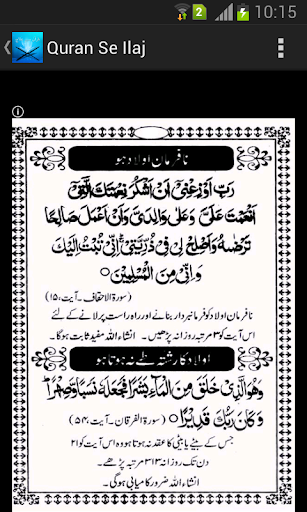 10:15
Quran Se Ilaj
نافرمان اولاد ہو
رَبِّ اَوْزِعْنِیْۤ اَنْ اَشْكُرَ نِعْمَتَكَ الَّتِیْۤ
اَنْعَمْتَ عَلَیَّ وَعَلٰی وَالِدَیَّ وَاَنْ اَعْمَلَ صَالِحًا
تَرْضٰىهُ وَاَصْلِحْ لِیْ فِیْ ذُرِّیَّتِیْ ۚ اِنِّیْ تُبْتُ اِلَیْكَ
وَاِنِّیْ مِنَ الْمُسْلِمِیْنَ ○
(سورۃ الاحقاف۔ آیت، ۱۵)
نافرمان اولاد کو فرمانبردار بنانے اور راہ راست پر لانے کے لئے
اس آیت کو ۳ مرتبہ روزانہ پڑھیں۔ انشاء اللہ مفید ثابت ہوگا۔
اولاد کا رشتہ طے نہ ہوتا ہو
وَهُوَ الَّذِیْ خَلَقَ مِنَ الْمَآءِ بَشَرًا فَجَعَلَهٗ نَسَبًا وَّصِهْرًا ؕ
وَكَانَ رَبُّكَ قَدِیْرًا ○ (سورۃ الفرقان۔ آیت، ۵۴)
جس کے بیٹے یا بیٹی کا عقد نہ ہوتا ہو وہ اس آیت کو ۲۱
دن تک روزانہ ۳۱۳ مرتبہ پڑھے۔
انشاء اللہ ضرور کامیابی ہوگی۔